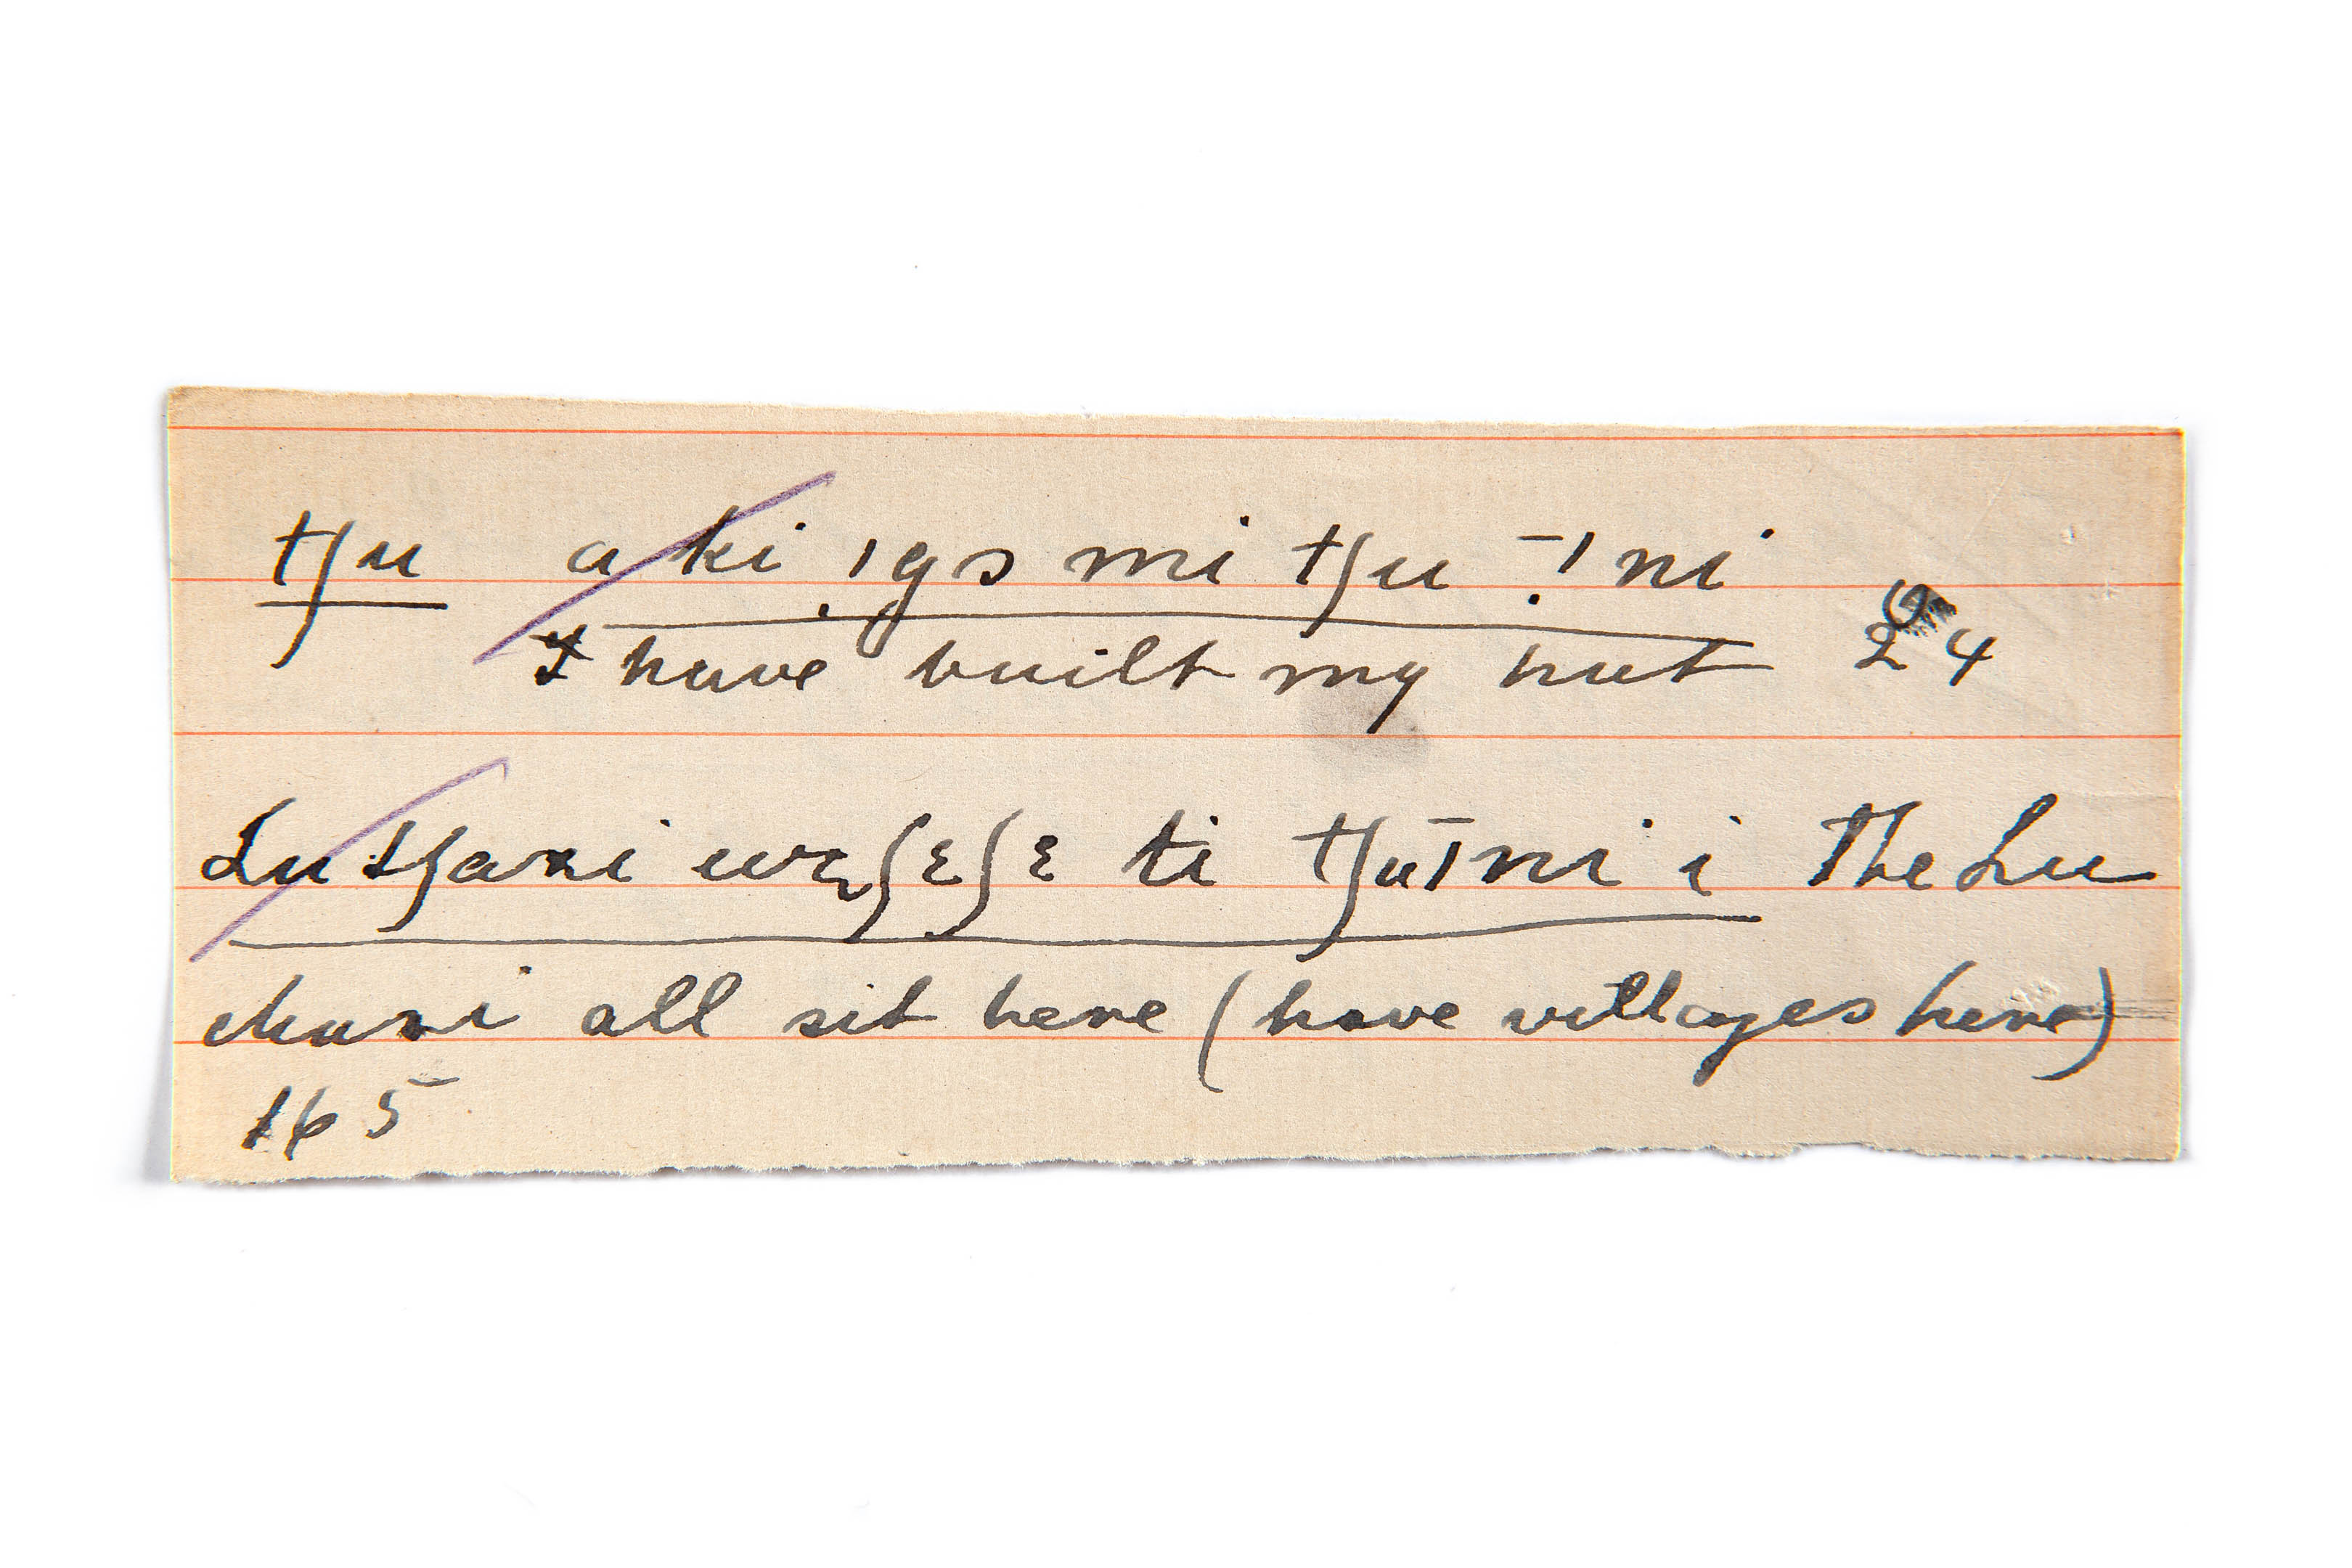 tʃu a ki ˌıgɔ mi tʃu ˉˌı ni
I have built my hut 24
Lutʃazi wɛʃɛʃɛ ti tʃuˉıni i The Lu
chazi all sit here (have villages here)
165